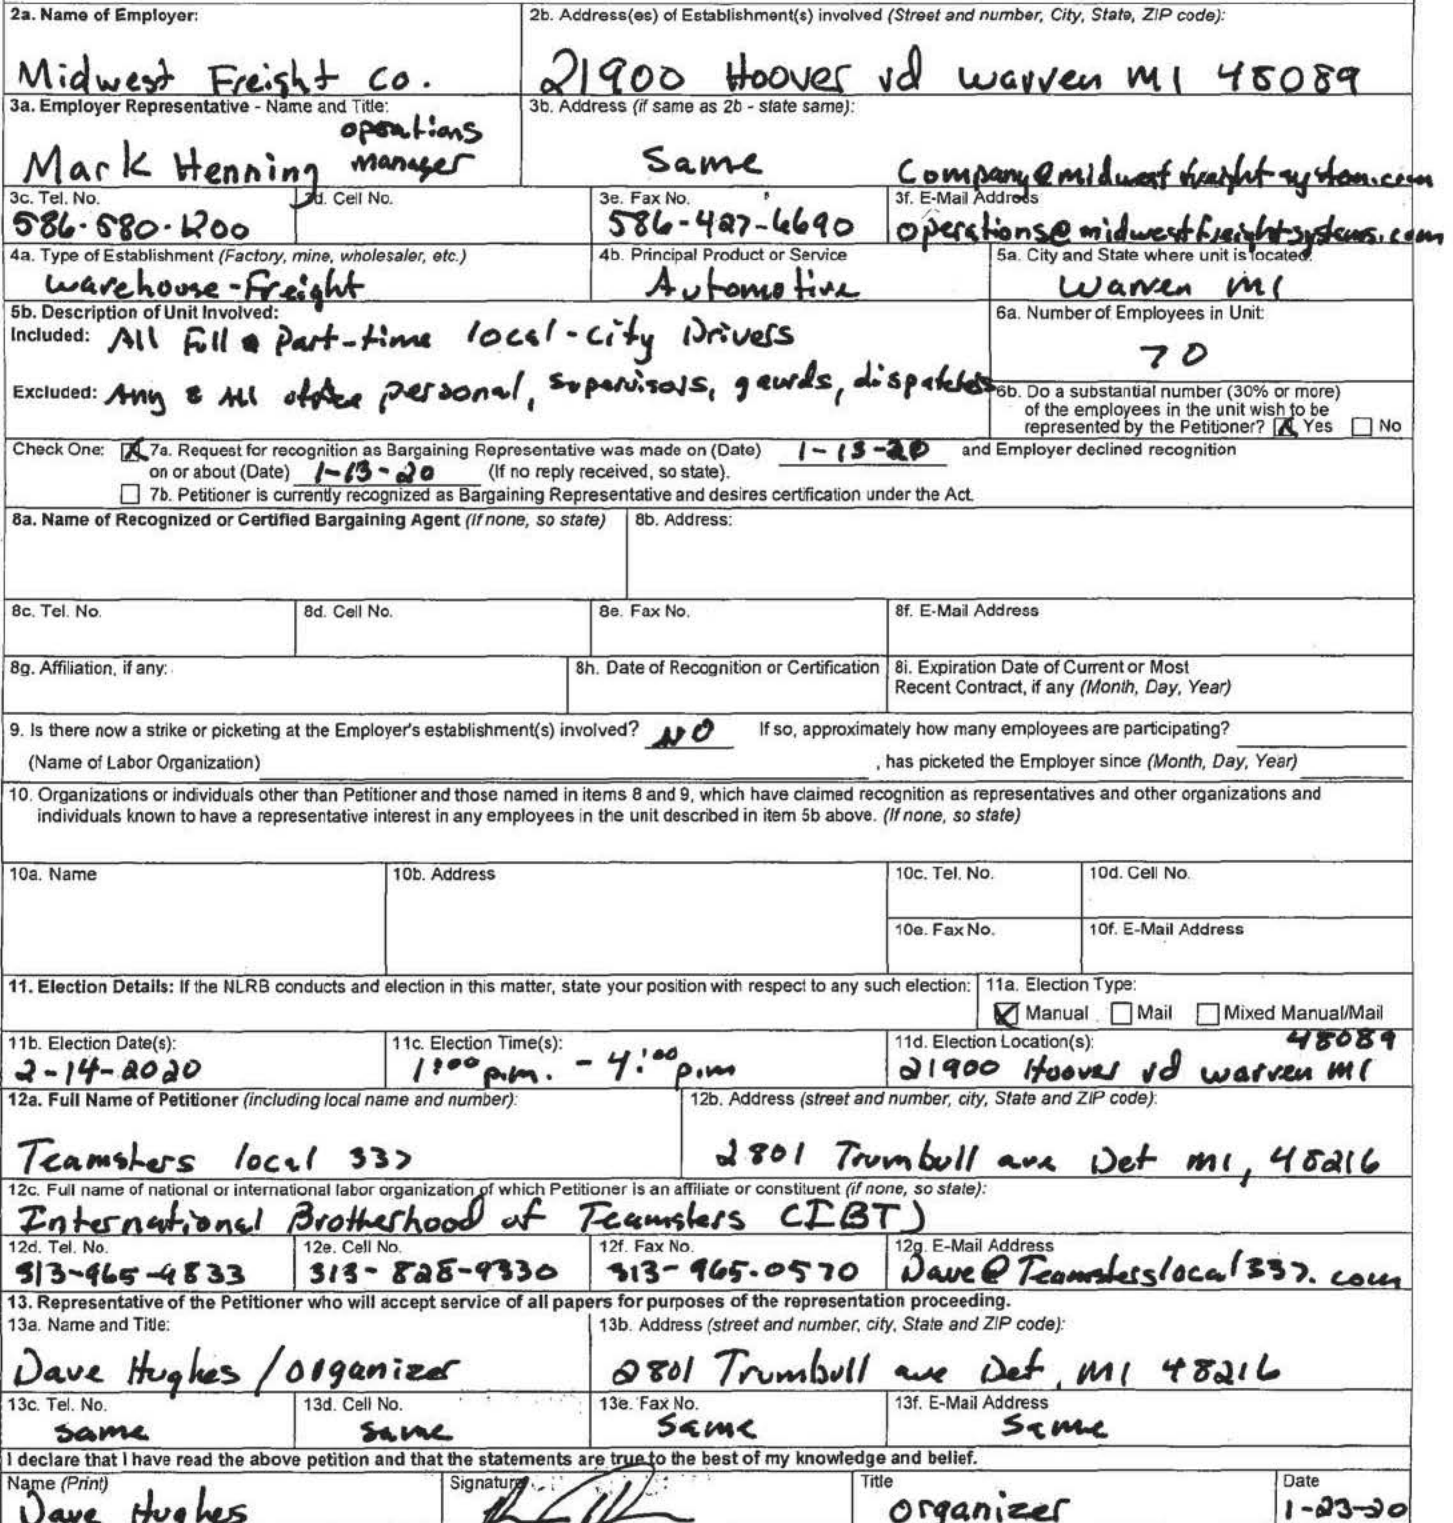 2a. Name of Employer:
2b. Address(es) of Establishment(s) involved (Street and number, City, State, ZIP code):
Midwest Freight Co.
21900 Hoover rd Warren MI 48089
3a. Employer Representative - Name and Title:
3b. Address (if same as 2b - state same):
operations
Mark Henning manager
Same
Company@midwestfreight-system.com
3c. Tel. No.
3d. Cell No.
3e. Fax No.
3f. E-Mail Address
586-580-1200
586-427-6690
operations@midwestfreightsystems.com
4a. Type of Establishment (Factory, mine, wholesaler, etc.)
4b. Principal Product or Service
5a. City and State where unit is located:
warehouse-Freight
Automotive
Warren MI
5b. Description of Unit Involved:
6a. Number of Employees in Unit:
Included: All Full & Part-time local-city Drivers
70
Excluded: Any & All office personal, supervisors, gaurds, dispatchers
6b. Do a substantial number (30% or more)
of the employees in the unit wish to be
represented by the Petitioner? Yes No
Check One: 7a. Request for recognition as Bargaining Representative was made on (Date) 1-13-20 and Employer declined recognition
on or about (Date) 1-13-20 (If no reply received, so state).
7b. Petitioner is currently recognized as Bargaining Representative and desires certification under the Act.
8a. Name of Recognized or Certified Bargaining Agent (if none, so state)
8b. Address:
8c. Tel. No.
8d. Cell No.
8e. Fax No.
8f. E-Mail Address
8g. Affiliation, if any:
8h. Date of Recognition or Certification
8i. Expiration Date of Current or Most
Recent Contract, if any (Month, Day, Year)
9. Is there now a strike or picketing at the Employer's establishment(s) involved? NO If so, approximately how many employees are participating?
(Name of Labor Organization) , has picketed the Employer since (Month, Day, Year)
10. Organizations or individuals other than Petitioner and those named in items 8 and 9, which have claimed recognition as representatives and other organizations and
individuals known to have a representative interest in any employees in the unit described in item 5b above. (If none, so state)
10a. Name
10b. Address
10c. Tel. No.
10d. Cell No.
10e. Fax No.
10f. E-Mail Address
11. Election Details: If the NLRB conducts and election in this matter, state your position with respect to any such election:
11a. Election Type:
Manual Mail Mixed Manual/Mail
11b. Election Date(s):
11c. Election Time(s):
11d. Election Location(s):
48089
2-14-2020
1:00 p.m. - 4:00 p.m
21900 Hoover rd warren MI
12a. Full Name of Petitioner (including local name and number):
12b. Address (street and number, city, State and ZIP code):
Teamsters local 337
2801 Trumbull ave Det MI, 48216
12c. Full name of national or international labor organization of which Petitioner is an affiliate or constituent (if none, so state):
International Brotherhood of Teamsters (IBT)
12d. Tel. No.
12e. Cell No.
12f. Fax No.
12g. E-Mail Address
313-965-9833
313-828-9330
313-965-0570
Dave@Teamsterslocal337.com
13. Representative of the Petitioner who will accept service of all papers for purposes of the representation proceeding.
13a. Name and Title:
13b. Address (street and number, city, State and ZIP code):
Dave Hughes / organizer
2801 Trumbull ave Det, MI 48216
13c. Tel. No.
13d. Cell No.
13e. Fax No.
13f. E-Mail Address
same
same
Same
Same
I declare that I have read the above petition and that the statements are true to the best of my knowledge and belief.
Name (Print)
Signature
Title
Date
Dave Hughes
organizer
1-23-20